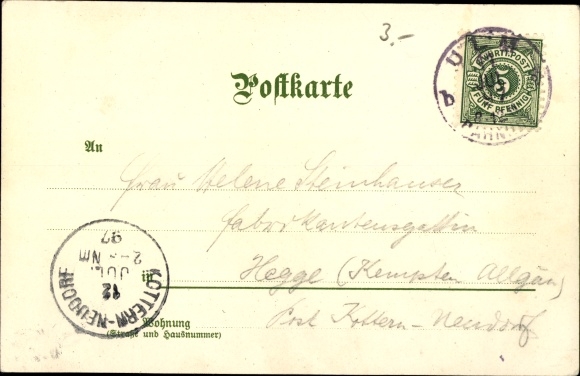 3.-
ULM
K.WÜRTT.POST
5
FÜNF PFENNIG
b
BAHNH
Postkarte
An
Frau Helene Steinhauser
Fabrikantensgattin
in Hegge (Kempten Allgäu)
Post Kottern-Neudorf
Wohnung
(Straße und Hausnummer)
KOTTERN-NEUDORF
12
JUL.
2-- Nm
97